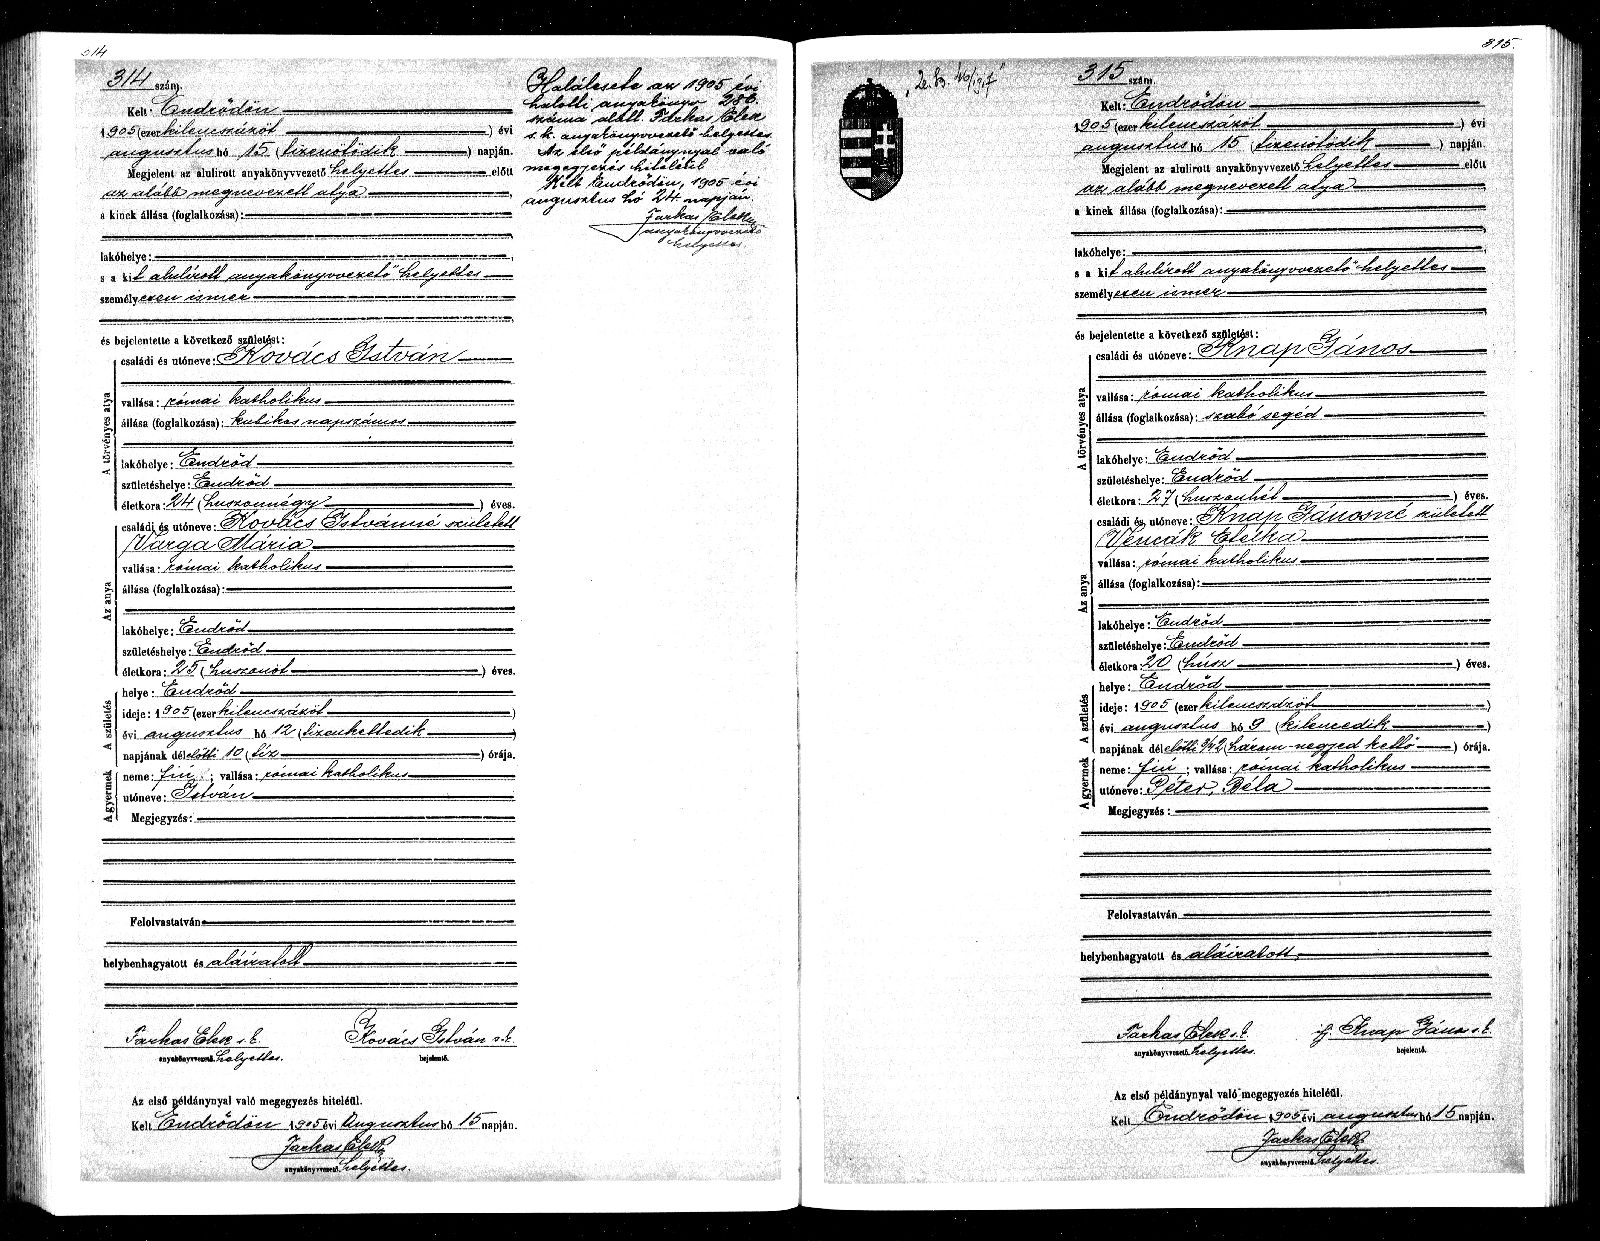 314
314 szám.
Kelt: Endrődön
1905 (ezer kilenczszázöt ) évi
augusztus hó 15 (tizenötödik ) napján.
Megjelent az alulirott anyakönyvvezető helyettes előtt
az alább megnevezett atya
a kinek állása (foglalkozása):
lakóhelye: ,
s a kit alulírott anyakönyvvezető helyettes
személyesen ismer
és bejelentette a következő születést:
A törvényes atya
családi és utóneve: Kovács István
vallása: római katholikus
állása (foglalkozása): kubikos napszámos
lakóhelye: Endrőd
születéshelye: Endrőd
életkora: 24 (huszonnégy ) éves.
Az anya
családi és utóneve: Kovács Istvánné született
Varga Mária
vallása: római katholikus
állása (foglalkozása):
lakóhelye: Endrőd
születéshelye: Endrőd
életkora: 25 (huszonöt ) éves.
A születés
helye: Endrőd
ideje: 1905 (ezer kilenczszázöt )
évi augusztus hó 12 (tizenkettedik )
napjának délelőtti 10 (tíz ) órája.
A gyermek
neme: fiú ; vallása: római katholikus
utóneve: István
Megjegyzés:
Felolvastatván
helybenhagyatott és aláíratott
Farkas Elek s. k. Kovács István s. k.
anyakönyvvezető helyettes. bejelentő.
Az első példánynyal való megegyezés hiteléül.
Kelt Endrődön 1905 évi Augusztus hó 15 napján.
Farkas Elek
anyakönyvvezető helyettes.
Halálesete az 1905 évi
halotti anyakönyv 286.
száma alatt. Farkas Elek
s. k. anyakönyvvezető helyettes.
Az első példánynyal való
megegyezés hiteléül
Kelt Endrődön, 1905 évi
augusztus hó 24 napján.
Farkas Elek
anyakönyvvezető
helyettes.
315.
315 szám.
Kelt: Endrődön
1905 (ezer kilenczszázöt ) évi
augusztus hó 15 (tizenötödik ) napján.
Megjelent az alulirott anyakönyvvezető helyettes előtt
az alább megnevezett atya
a kinek állása (foglalkozása):
lakóhelye: ,
s a kit alulírott anyakönyvvezető-helyettes
személyesen ismer
és bejelentette a következő születést:
A törvényes atya
családi és utóneve: Knap János
vallása: római katholikus
állása (foglalkozása): szabó segéd
lakóhelye: Endrőd
születéshelye: Endrőd
életkora: 27 (huszonhét ) éves.
Az anya
családi és utóneve: Knap Jánosné született
Venczák Etelka
vallása: római katholikus
állása (foglalkozása):
lakóhelye: Endrőd
születéshelye: Endrőd
életkora: 20 (húsz ) éves.
A születés
helye: Endrőd
ideje: 1905 (ezer kilenczszázöt )
évi augusztus hó 9 (kilenczedik )
napjának délelőtti 3/4 2 (három-negyed kettő ) órája.
A gyermek
neme: fiú ; vallása: római katholikus
utóneve: Péter, Béla
Megjegyzés:
Felolvastatván
helybenhagyatott és aláíratott
Farkas Elek s. k. ifj. Knap János s. k.
anyakönyvvezető helyettes. bejelentő.
Az első példánynyal való megegyezés hiteléül.
Kelt Endrődön 1905 évi augusztus hó 15 napján.
Farkas Elek
anyakönyvvezető helyettes.